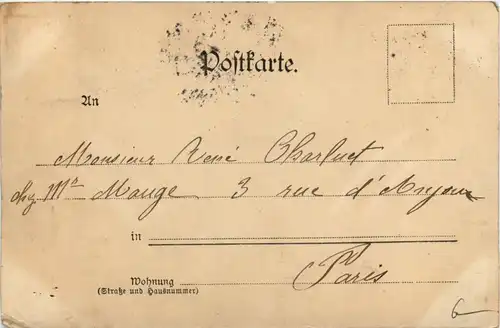 Postkarte.
An
Monsieur René Charluet
chez Mr Mauge 3 rue d'Anjou
in
Paris
Wohnung
(Straße und Hausnummer)
6